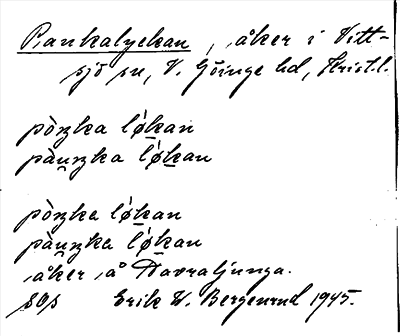 Pankalyckan, åker i Vitt-
sjö sn, V. Göinge hd, Krist.l.
pòŋka løkan
pàuŋka løkan
pòŋka løkan
pàuŋka løkan
åker å Davraljunga.
Erik W. Bergenrud 1945.